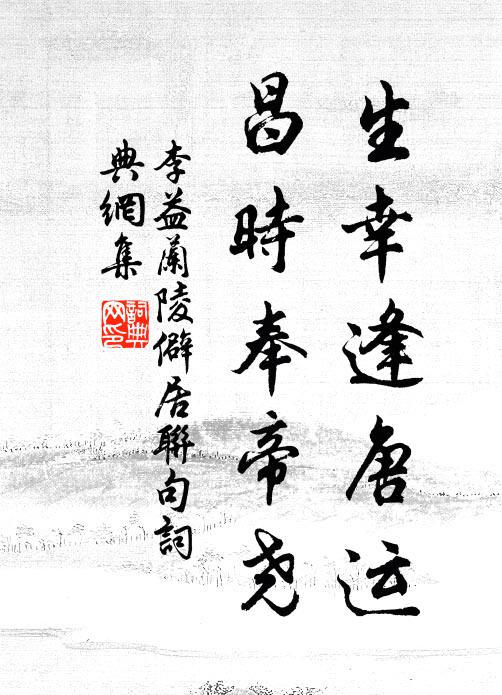 生幸逢唐运
昌時奉帝尧
李益蘭陵僻居聯句詞
典網集
詞典
网印